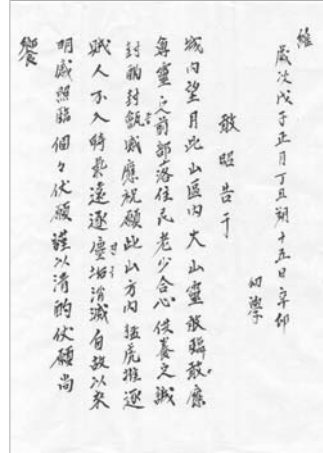 維
歲次戊子正月丁丑朔十五日辛卯
幼學
敢昭告于
城內望月此山區內大山靈敢昭敢應
尊靈之前部落住民老少合心供養之誠
封酌封甑感應祝願此山方內猛虎推逐
賊人不入時氣遠逐 消滅自故以來
明感照臨個々伏願謹以清酌伏願尚
饗